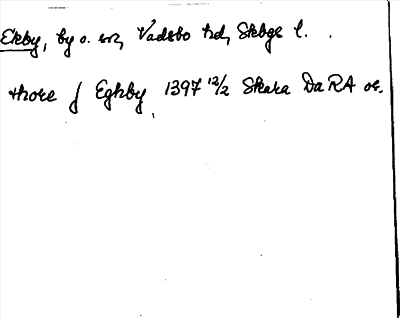 Ekby, by o. sn, Vadsbo hd, Skbgs l.
thore j Eghby 1397 12/2 Skara DaRA or.